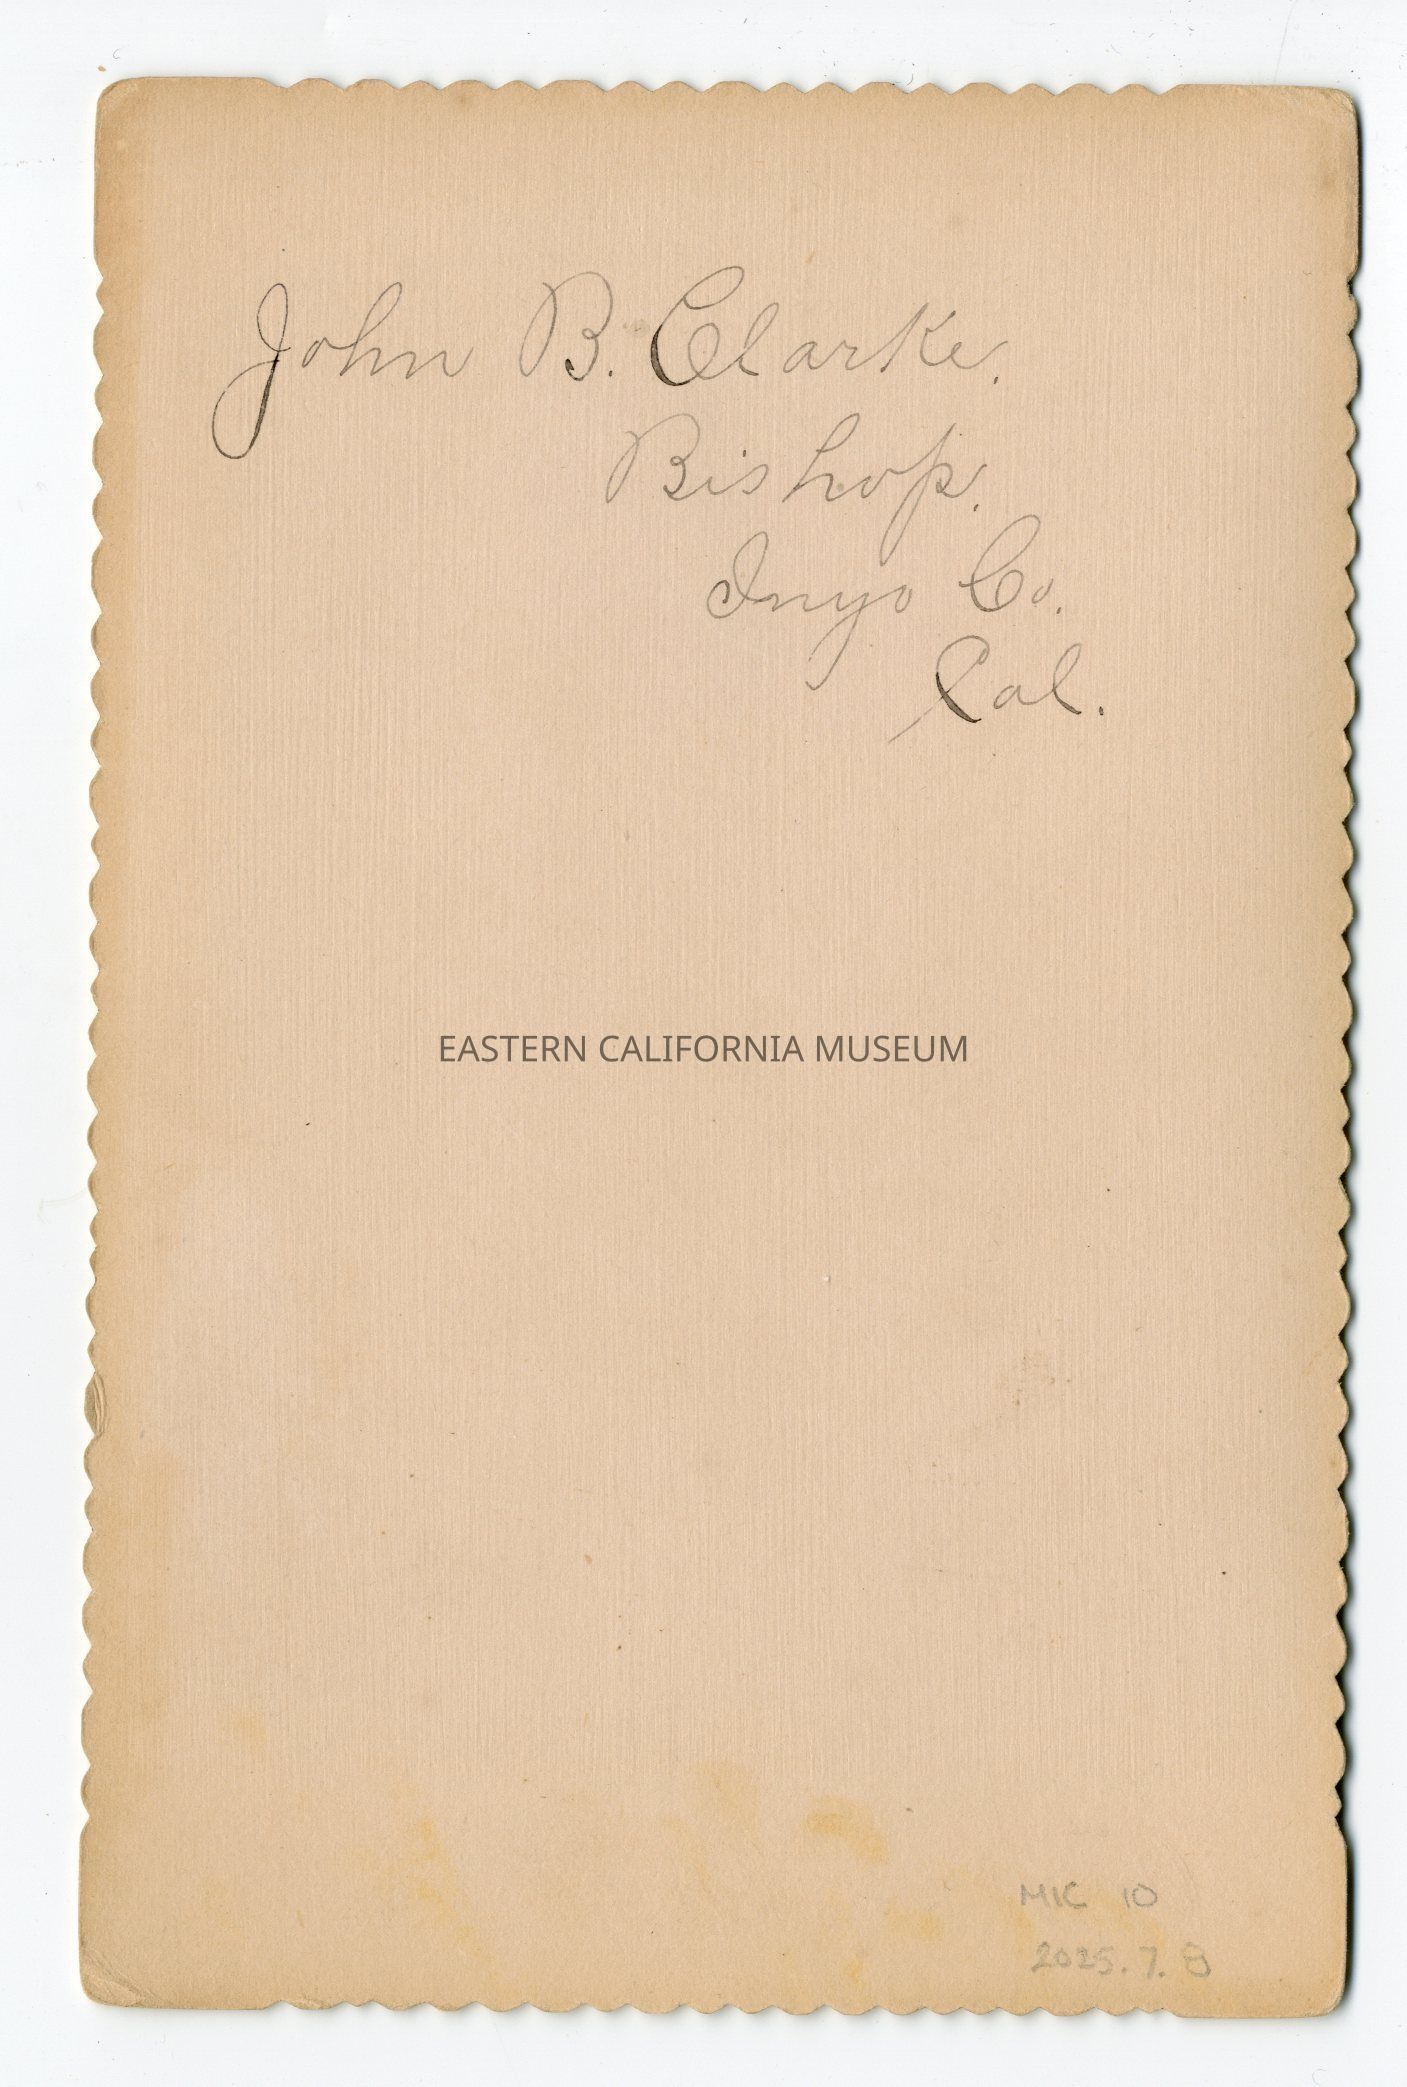 John B. Clarke.
Bishop.
Inyo Co.
Cal.
EASTERN CALIFORNIA MUSEUM
MIC 10
2025.7.8